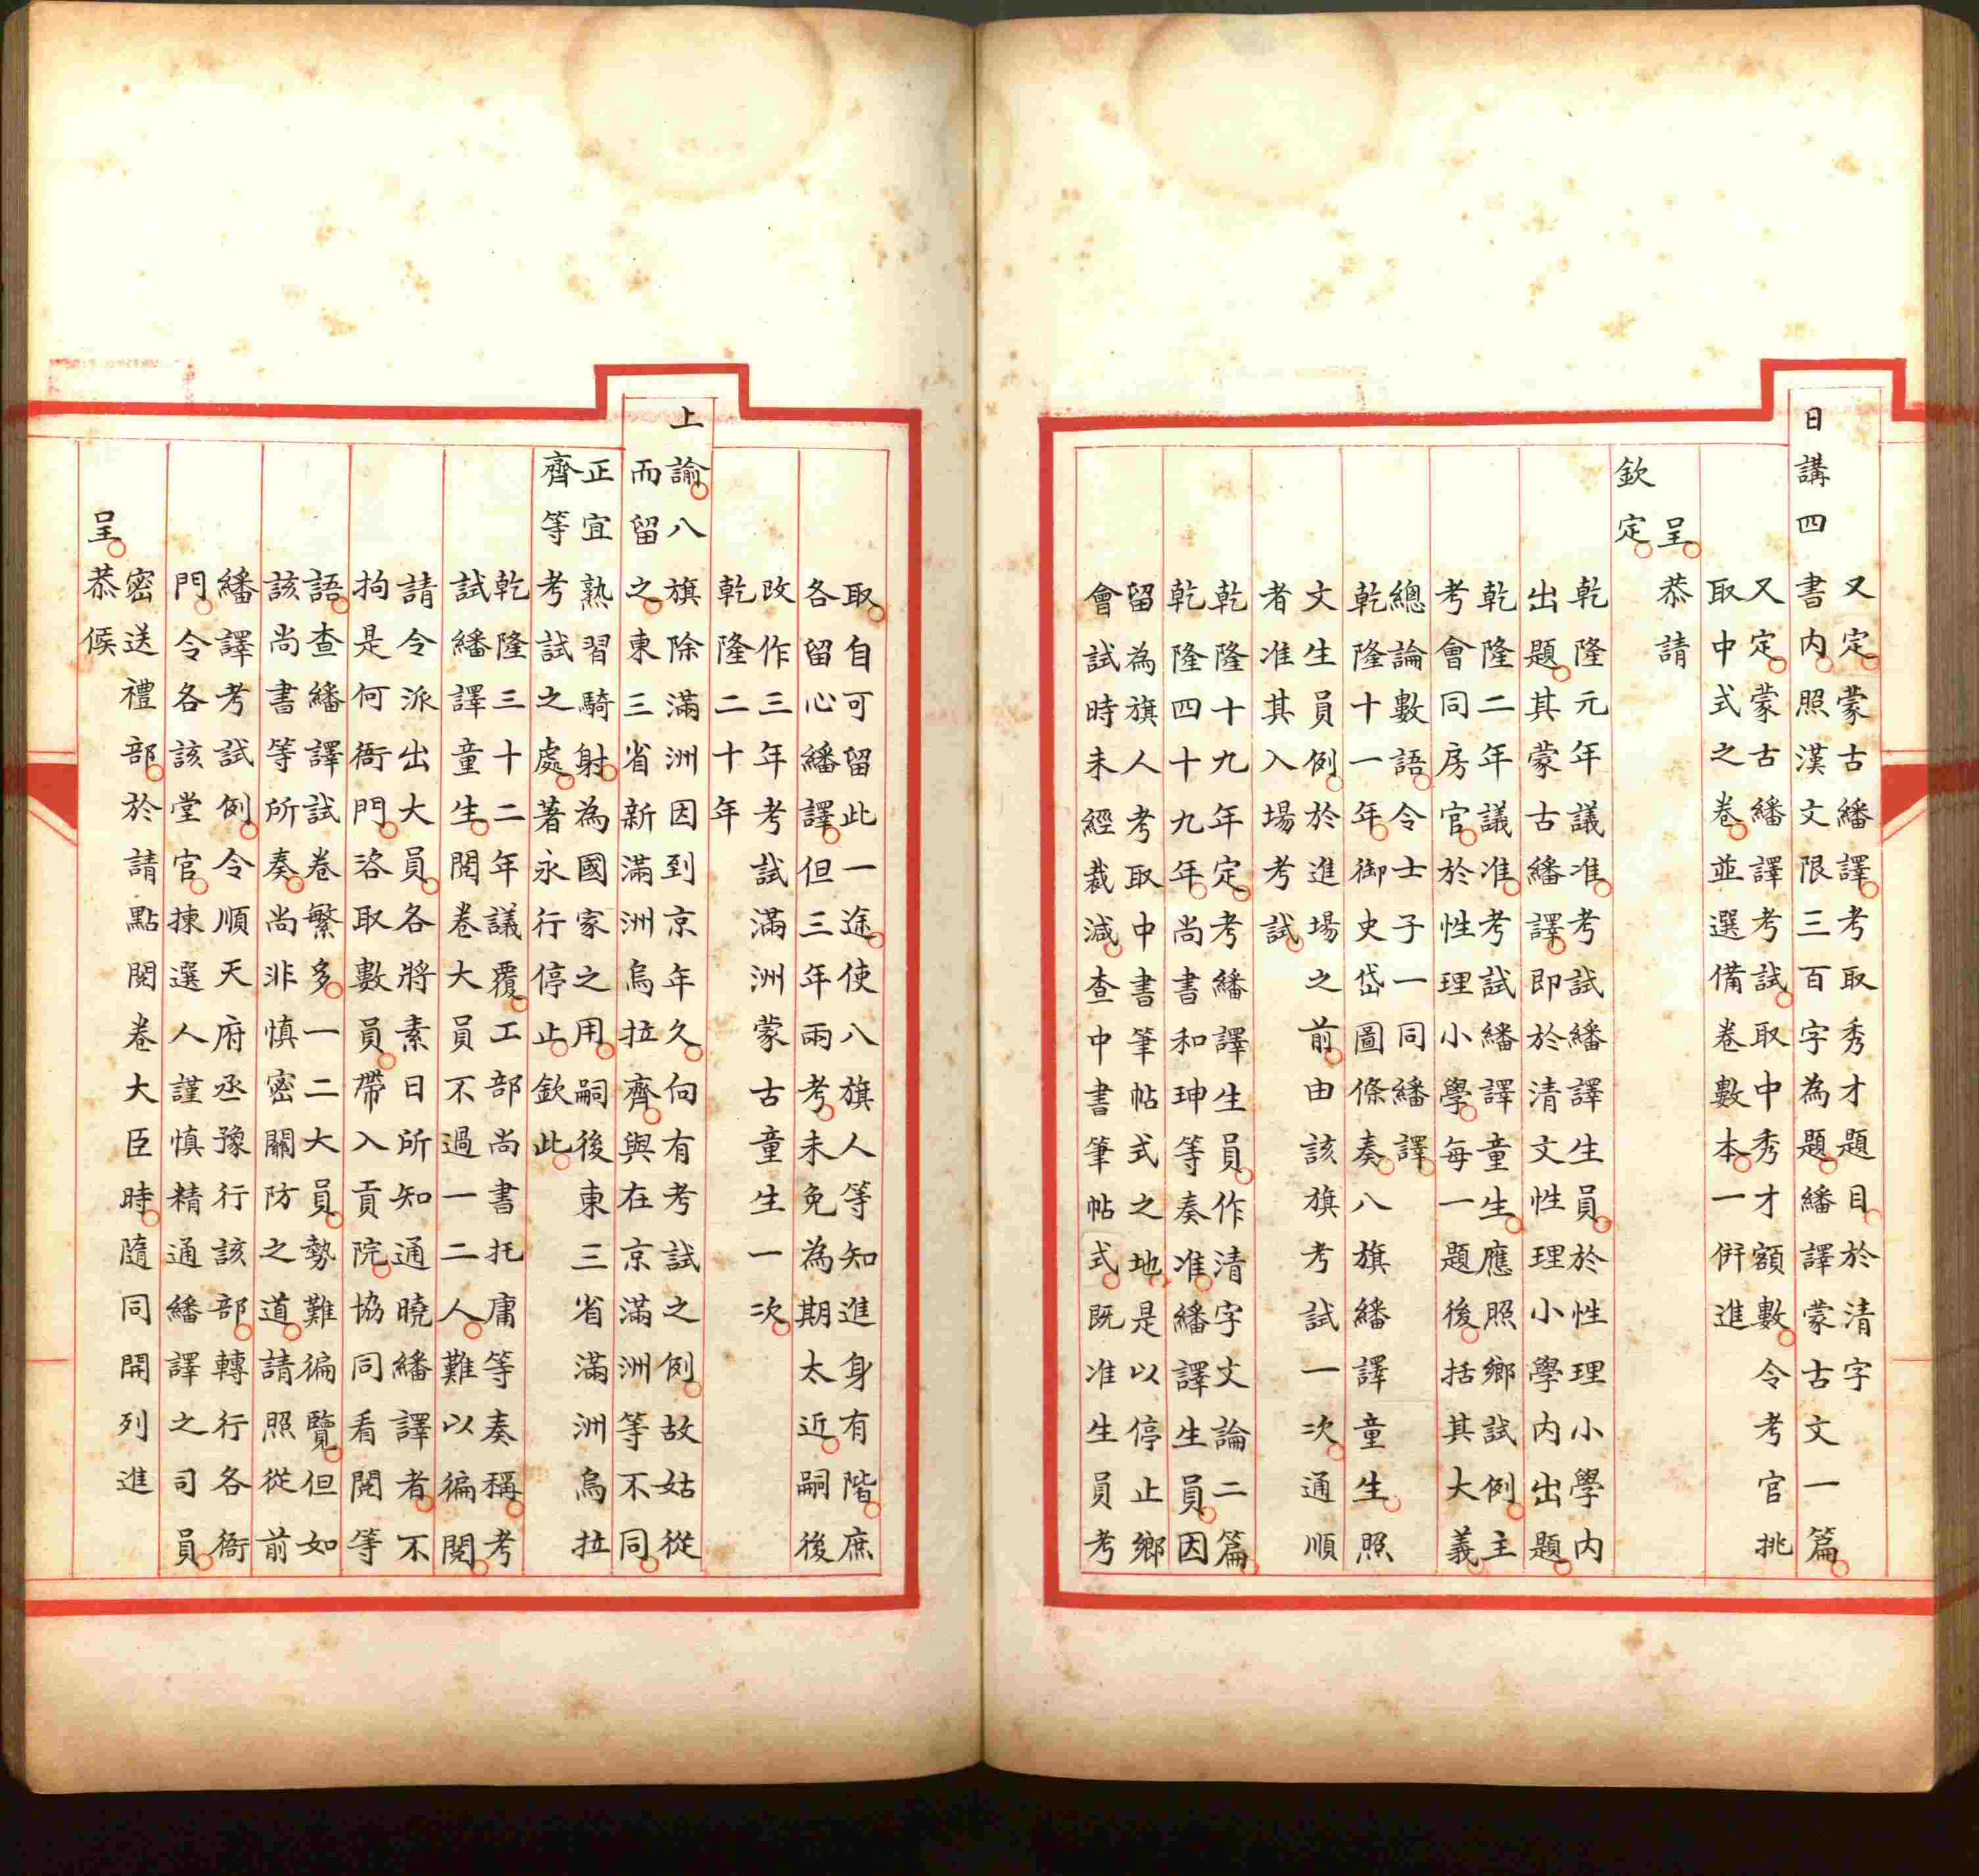 又定蒙古繙譯考取秀才題目於清字
日講四書内照漢文限三百字為題繙譯蒙古文一篇
又定蒙古繙譯考試取中秀才額數令考官挑
取中式之卷並選備卷數本一併進
呈恭請
欽定
乾隆元年議准考試繙譯生員於性理小學内
出題其蒙古繙譯即於清文性理小學内出題
乾隆二年議准考試繙譯童生應照鄉試例主
考會同房官於性理小學每一題後括其大義
總論數語令士子一同繙譯
乾隆十一年御史岱圖條奏八旗繙譯童生照
文生員例於進場之前由該旗考試一次通順
者准其入場考試
乾隆十九年定考繙譯生員作清字文論二篇
乾隆四十九年尚書和珅等奏准繙譯生員因
留為旗人考取中書筆帖式之地是以停止鄉
會試時未經裁減查中書筆帖式既准生員考
取自可留此一途使八旗人等知進身有階庶
各留心繙譯但三年兩考未免為期太近嗣後
改作三年考試滿洲蒙古童生一次
乾隆二十年
上諭八旗除滿洲因到京年久向有考試之例故姑從
而留之東三省新滿洲烏拉齊與在京滿洲等不同
正宜熟習騎射為國家之用嗣後東三省滿洲烏拉
齊等考試之處著永行停止欽此
乾隆三十二年議覆工部尚書托庸等奏稱考
試繙譯童生閱卷大員不過一二人難以徧閱
請令派出大員各將素日所知通曉繙譯者不
拘是何衙門咨取數員帶入貢院協同看閱等
語查繙譯試卷繁多一二大員勢難徧覽但如
該尚書等所奏尚非慎密關防之道請照從前
繙譯考試例令順天府丞豫行該部轉行各衙
門令各該堂官揀選人謹慎精通繙譯之司員
密送禮部於請點閱卷大臣時隨同開列進
呈恭候